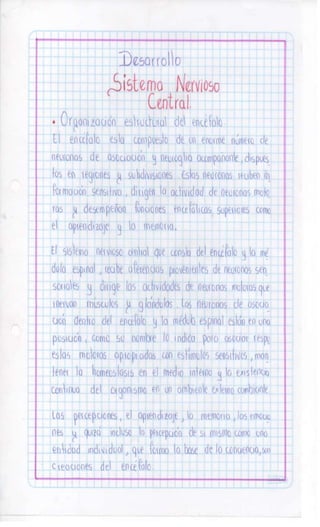 Desarrollo
Sistema Nervioso
Central.
• Organización estructural del encéfalo
El encéfalo esta compuesto de un enorme número de
neuronas de asociación y neuroglia acompañante, dispues
tas en regiones y subdivisiones. Estas neuronas reciben in
formación sensitiva, dirigen la actividad de neuronas moto
ras y desempeñan funciones encefálicas superiores como
el aprendizaje y la memoria.
El sistema nervioso central que consta del encéfalo y la mé
dula espinal, recibe aferencias provenientes de neuronas sen
soriales y dirige las actividades de neuronas motoras que
inervan músculos y glándulas. Las neuronas de asocia
ción dentro del encéfalo y la médula espinal están en una
posición, como su nombre lo indica para asociar respu
estas motoras apropiadas con estímulos sensitivos, man
tener la homeostasis en el medio interno y la existencia
continua del organismo en un ambiente externo cambiante.
Las percepciones, el aprendizaje, la memoria, las emocio
nes y quizá incluso la percepción de si mismo como una
entidad individual, que forma la base de la conciencia, son
creaciones del encéfalo.